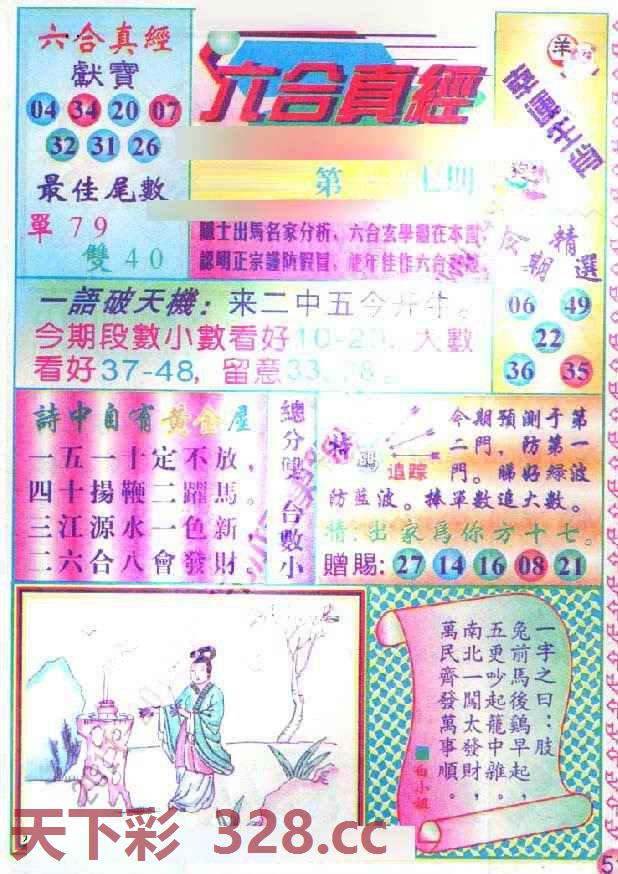 六合真經
獻寶
04 34 20 07
32 31 26
最佳尾數
單79
雙40
六合真經
第
期
羊
士出馬名家分析,六合玄學盡在本
認明正宗謹防假冒,
期
精選
06 49
22
36 35
一語破天機:来二中五今开牛。
今期段數小數看好10-2 ,大數
看好37-48,留意33
詩中自有黃金屋
一五一十定不放,
四十揚鞭二躍馬。
三江源水一色新,
二六合八會發財。
總分雙
合數小
特碼
追踪
今期預測于第
二門,防第一
門。睇好綠波
防藍波。捧單數追大數。
猜:出家爲你方十七。
贈賜:27 14 16 08 21
一字之曰:肢
兔前馬後鷄早起,
五更吵起龍中雜。
南北一闖太發財,
萬民齊發萬事順。
白小姐
2
天下彩 328.cc
5